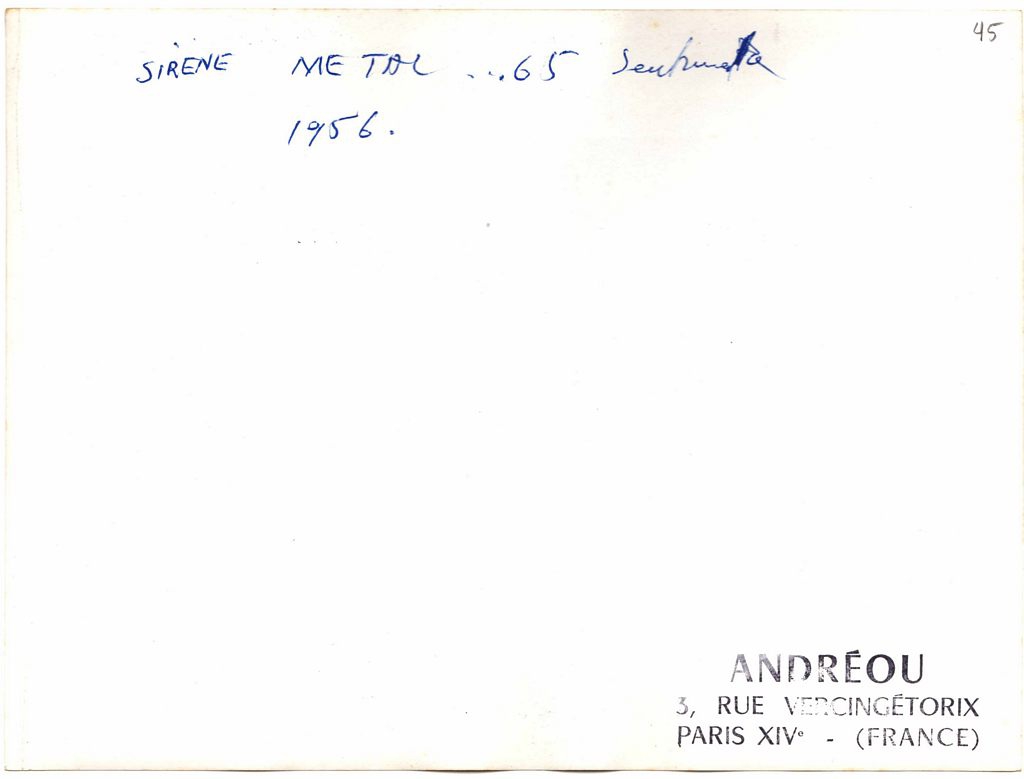 45
SIRENE METAL ...65
1956.
ANDRÉOU
3, RUE VERCINGÉTORIX
PARIS XIVᵉ - (FRANCE)